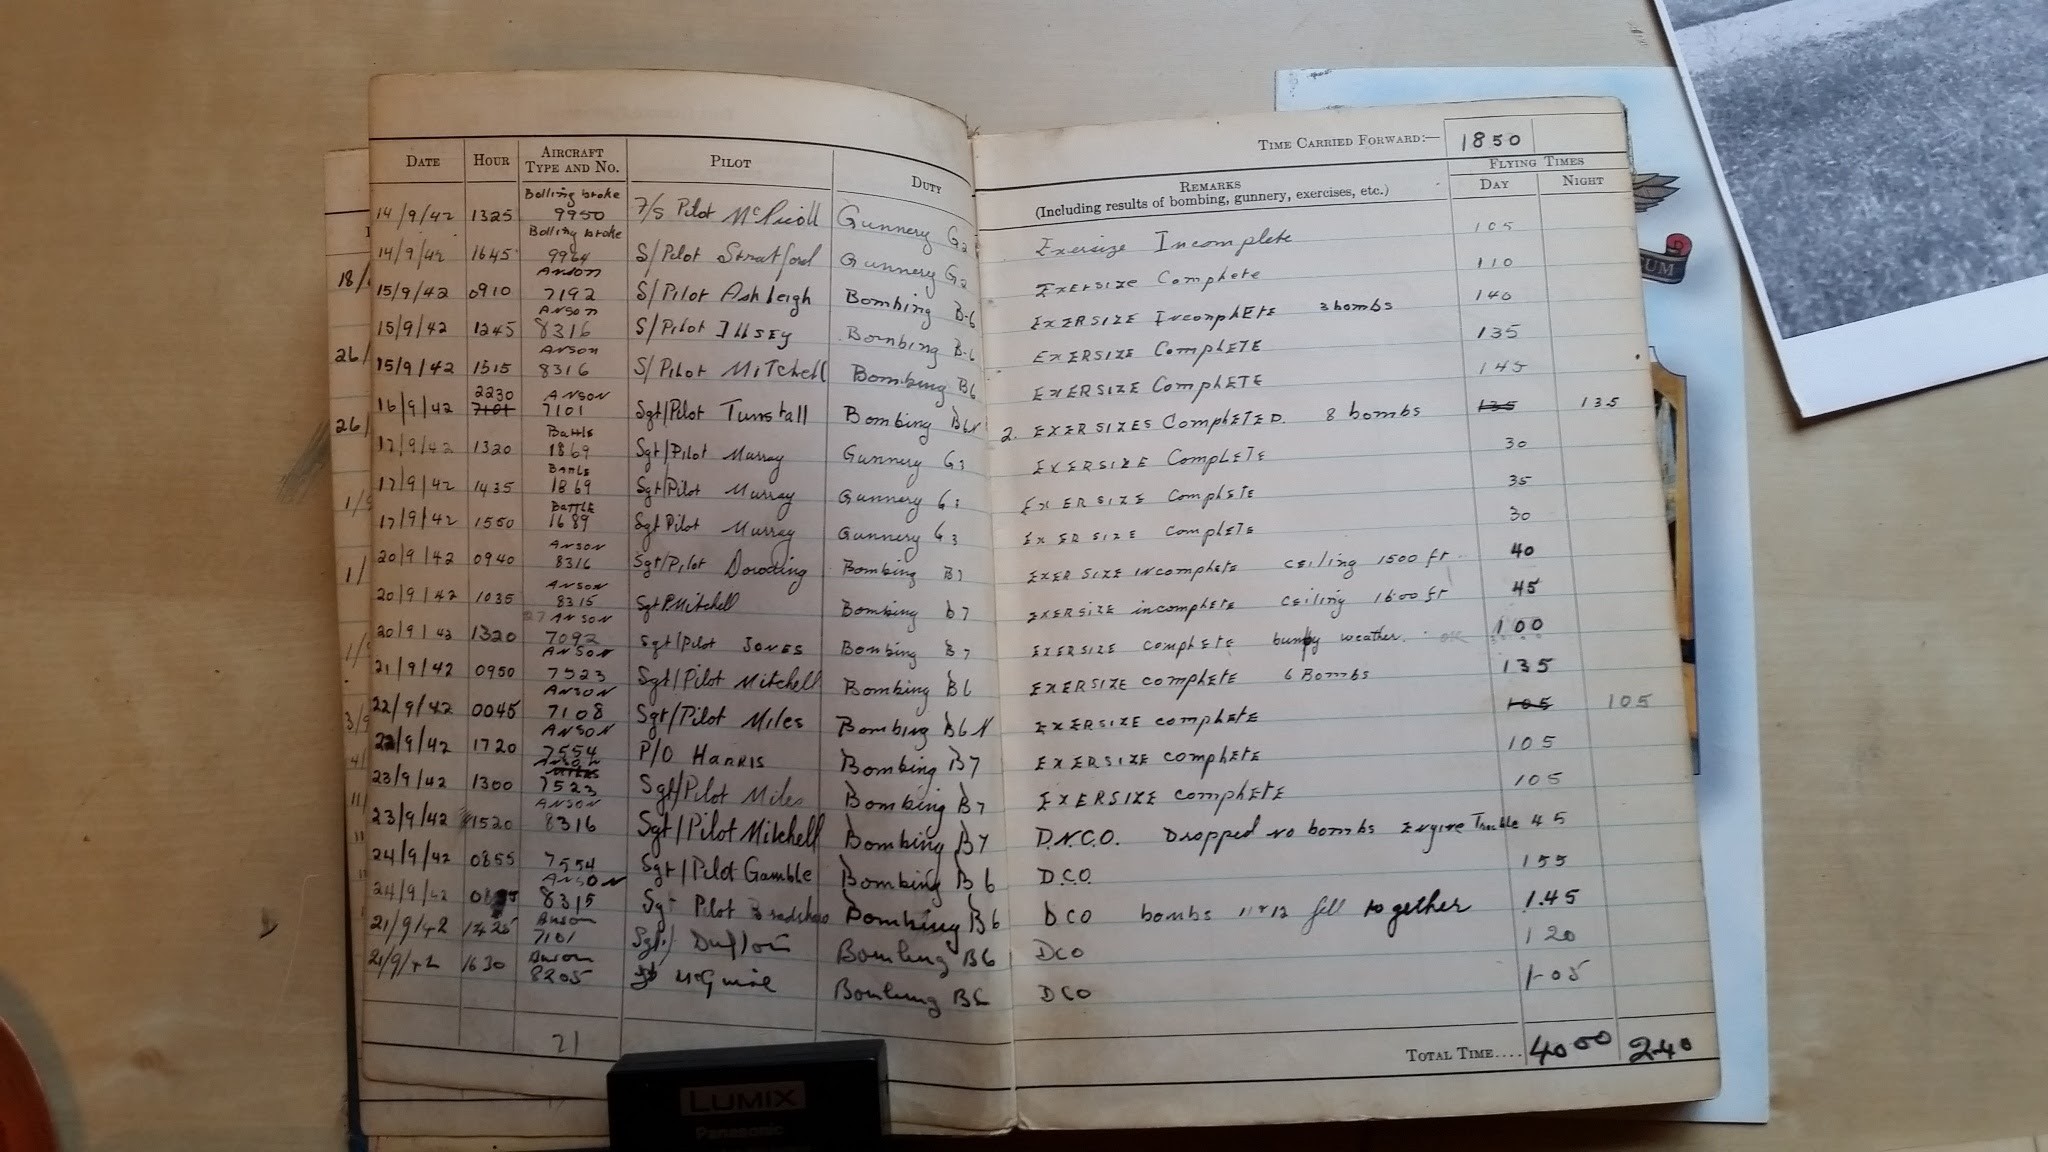 TIME CARRIED FORWARD:— 1850
DATE HOUR AIRCRAFT TYPE AND NO. PILOT DUTY REMARKS (Including results of bombing, gunnery, exercises, etc.) FLYING TIMES DAY NIGHT
14/9/42 1325 Bolling broke 9950 F/S Pilot Gunnery G2 Exersize Incomplete 105
14/9/42 1645 Bolling broke 9964 S/Pilot Stratford Gunnery G2 Exersize Complete 110
15/9/42 0910 Anson 7192 S/Pilot Ashleigh Bombing B-6 EXERSIZE IncomplEtE 3 bombs 140
15/9/42 1245 Anson 8316 S/Pilot Illsey Bombing B-6 EXERSIZE ComplETE 135
15/9/42 1515 Anson 8316 S/Pilot MiTchell Bombing B6 EXERSIZE ComplETE 145
16/9/42 2230 7101 ANSON 7101 Sgt/Pilot Tunstall Bombing B6N 2. EXERSIZES ComplETED. 8 bombs 135 135
17/9/42 1320 Battle 1869 Sgt/Pilot Murray Gunnery G3 EXERSIZE ComplETE 30
17/9/42 1435 Battle 1869 Sgt/Pilot Murray Gunnery G3 EXERSIZE ComplEtE 35
17/9/42 1550 Battle 1689 Sgt Pilot Murray Gunnery G3 EXERSIZE ComplETE 30
20/9/42 0940 ANSON 8316 Sgt/Pilot Dowding Bombing B7 EXERSIZE incomplete ceiling 1500 ft. 40
20/9/42 1035 ANSON 8315 Sgt P. Mitchell Bombing b7 EXERSIZE incomplete ceiling 1600 ft 45
20/9/42 1320 ANSON 7092 Sgt/Pilot JONES Bombing B7 EXERSIZE complEtE bumpy weather. 100
21/9/42 0950 ANSON 7523 Sgt/Pilot Mitchell Bombing B6 EXERSIZE complEtE 6 Bombs 135
22/9/42 0045 ANSON 7108 Sgt/Pilot Miles Bombing B6N EXERSIZE complEtE 105 105
22/9/42 1720 ANSON 7554 P/O HARRIS Bombing B7 EXERSIZE complEtE 105
23/9/42 1300 Anson 7523 Sgt/Pilot Miles Bombing B7 EXERSIZE complete 105
23/9/42 1520 ANSON 8316 Sgt/Pilot Mitchell Bombing B7 D.N.C.O. Dropped no bombs Engine Trouble 45
24/9/42 0855 7554 Sgt/Pilot Gamble Bombing B6 D.C.O. 155
24/9/42 ANSON 8315 Sgt Pilot Bradshaw Bombing B6 DCO bombs 11+12 fell together 1.45
21/9/42 1425 Anson 7101 Sgt/ Bombing B6 DCO 120
21/9/42 1630 Anson 8205 McGuire Bombing B6 DCO 1-05
21 TOTAL TIME.... 4000 240
18/
26/
26/
1/9
1/
3/9
LUMIX
Panasonic
EUM